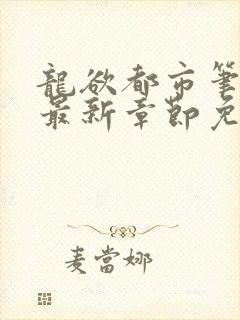 龍欲都市筆
最新章節免
麦當娜